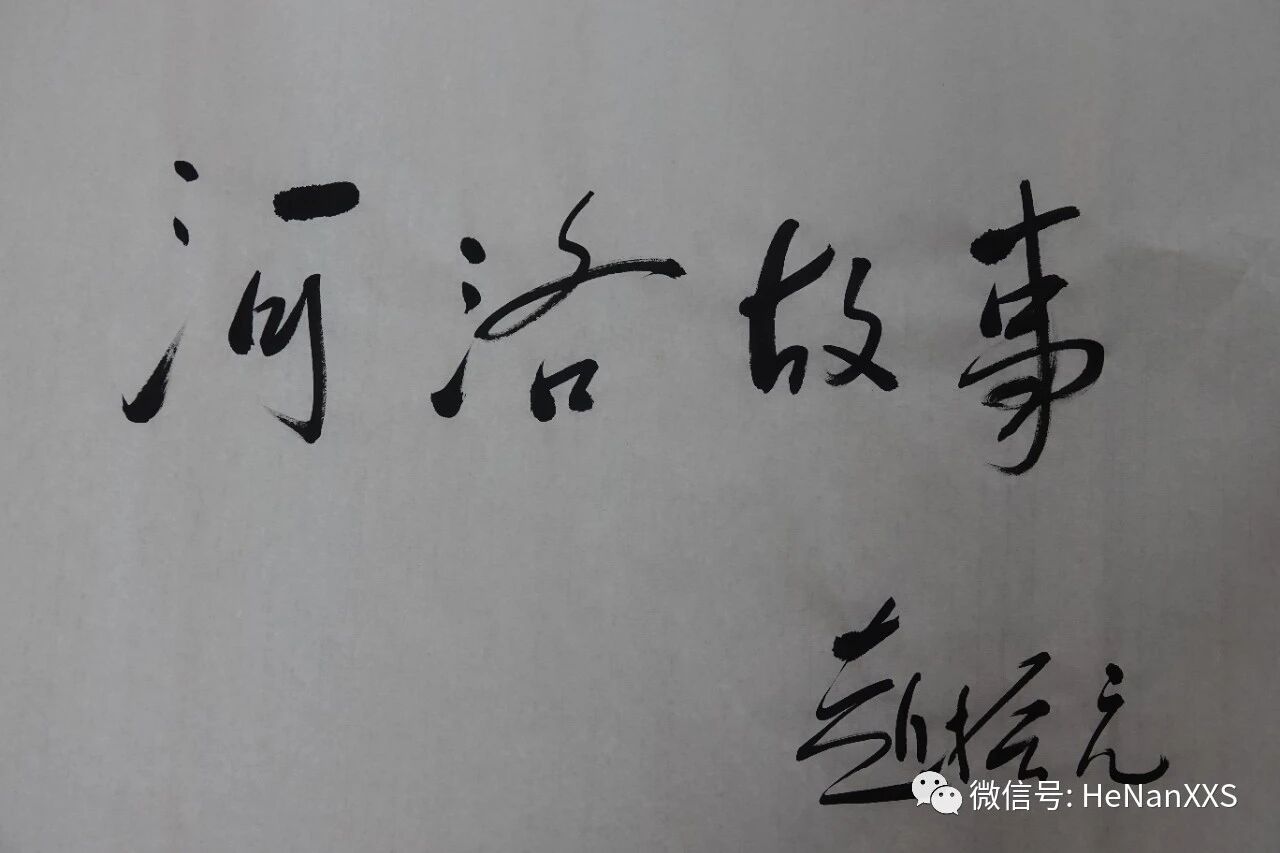 河洛故事
赵拾元
微信号: HeNanXXS